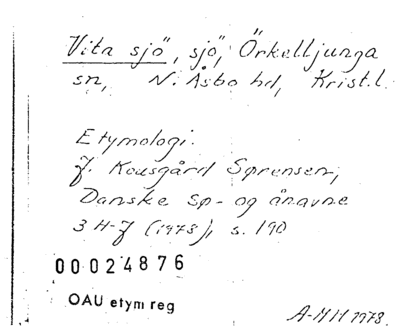 Vita sjö, sjö, Örkelljunga
sn, N. Åsbo hd, Krist.l.
Etymologi.
J. Kousgård Sørensen,
Danske sø- og ånavne
3 H-J (1978), s. 190
00024876
OAU etym reg
A-MH 1978.